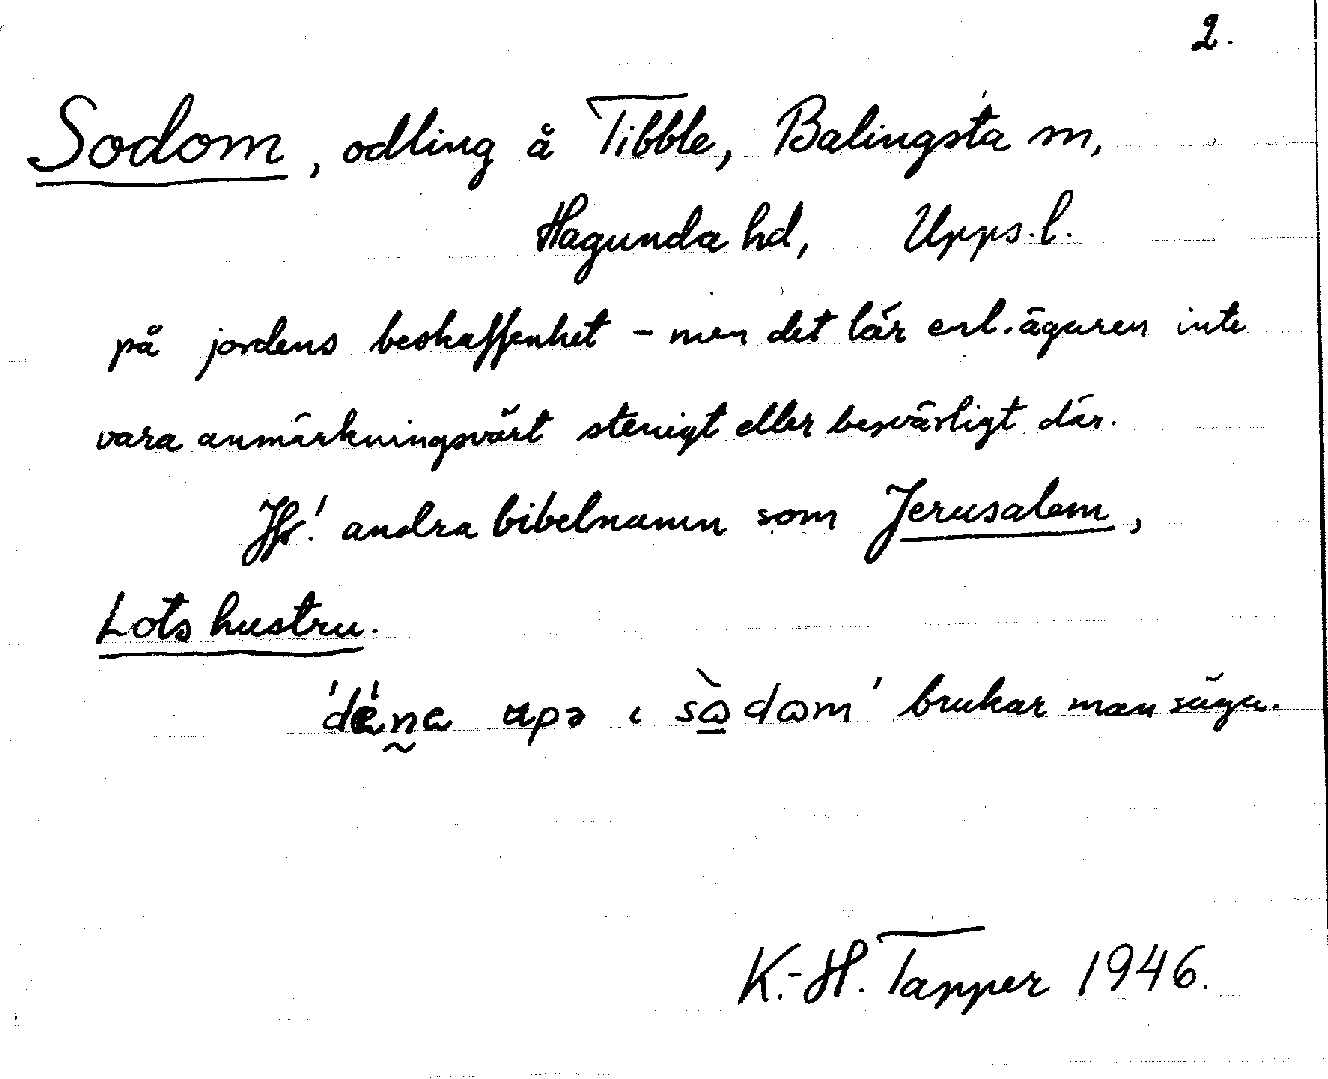 2.
Sodom, odling å Tibble, Balingsta sn,
Hagunda hd, Upps.l.
på jordens beskaffenhet – men det lär enl. ägaren inte
vara anmärkningsvärt stenigt eller besvärligt där.
Jfr! andra bibelnamn som Jerusalem,
Lots hustru.
brukar man säga.
K.-H. Tapper 1946.